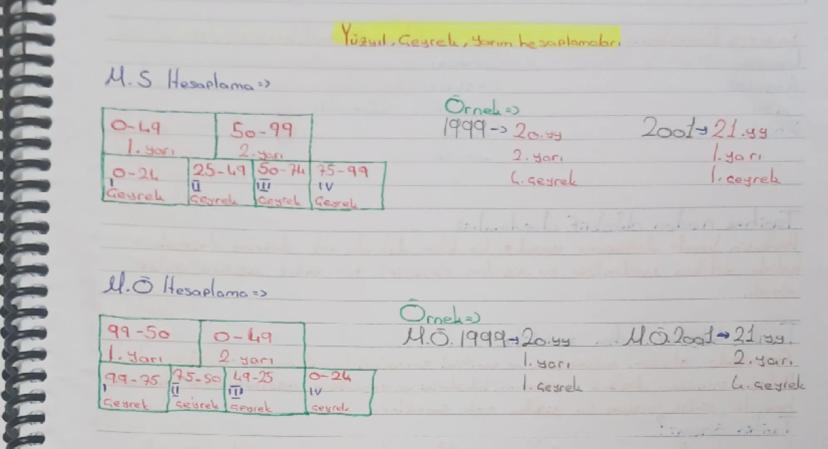 Yüzyıl, Çeyrek, yarım hesaplamaları
M.S Hesaplama =>
0-49 50-99
1. yarı 2. yarı
0-24 25-49 50-74 75-99
I II III IV
Çeyrek Çeyrek Çeyrek Çeyrek
Örnek =>
1999 -> 20.yy
2. yarı
4. çeyrek
2001 -> 21.yy
1. yarı
1. çeyrek
M.Ö Hesaplama =>
99-50 0-49
1. yarı 2. yarı
99-75 75-50 49-25 0-24
I II III IV
Çeyrek Çeyrek Çeyrek çeyrek
Örnek =>
M.Ö. 1999 -> 20.yy
1. yarı
1. çeyrek
M.Ö. 2001 -> 21.yy.
2. yarı.
4. çeyrek